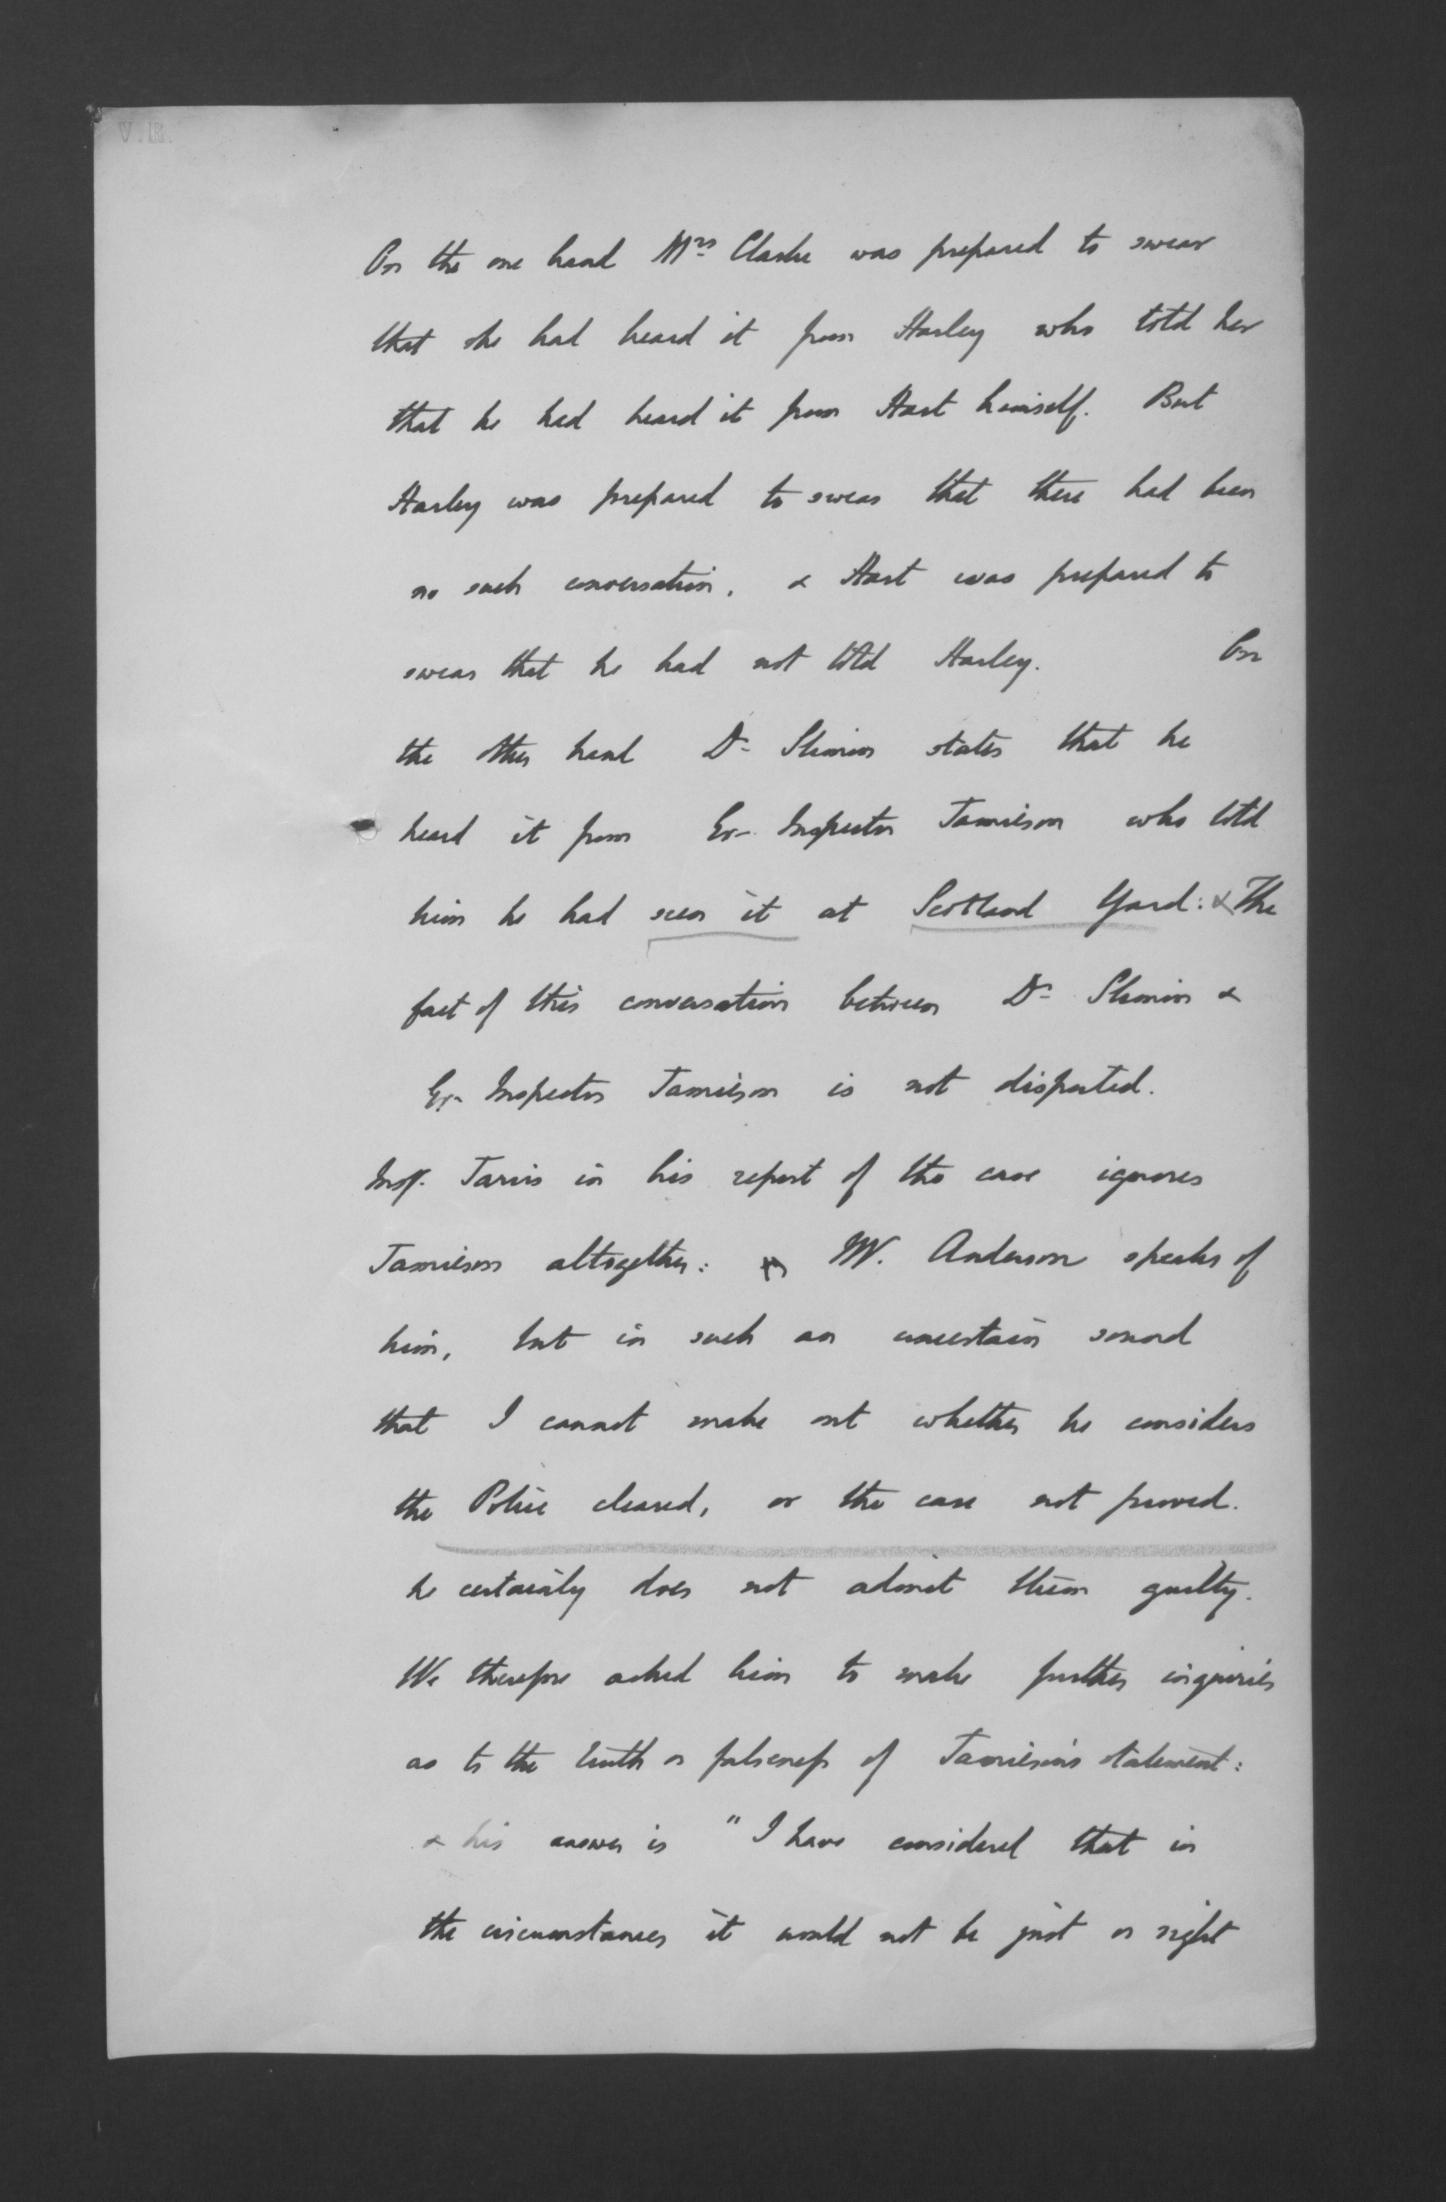 V.R.
On the one hand Mrs Clarke was prepared to swear
that she had heard it from Harley who told her
that he had heard it from Hart himself. But
Harley was prepared to swear that there had been
no such conversation, & Hart was prepared to
swear that he had not told Harley. On
the other hand Dr
states that he
heard it from Ex-Inspector Jamieson who told
him he had seen it at Scotland Yard: & The
fact of this conversation between Dr
&
Ex-Inspector Jamieson is not disputed.
Insp. Jarvis in his report of the case ignores
Jamieson altogether: Mr. Anderson speaks of
him, but in such an uncertain sound
that I cannot make out whether he considers
the Police cleared, or the case not proved.
he certainly does not admit them guilty.
We therefore asked him to make further inquiries
as to the truth or falseness of Jamieson's statement:
& his answer is "I have considered that in
the circumstances it would not be just or right